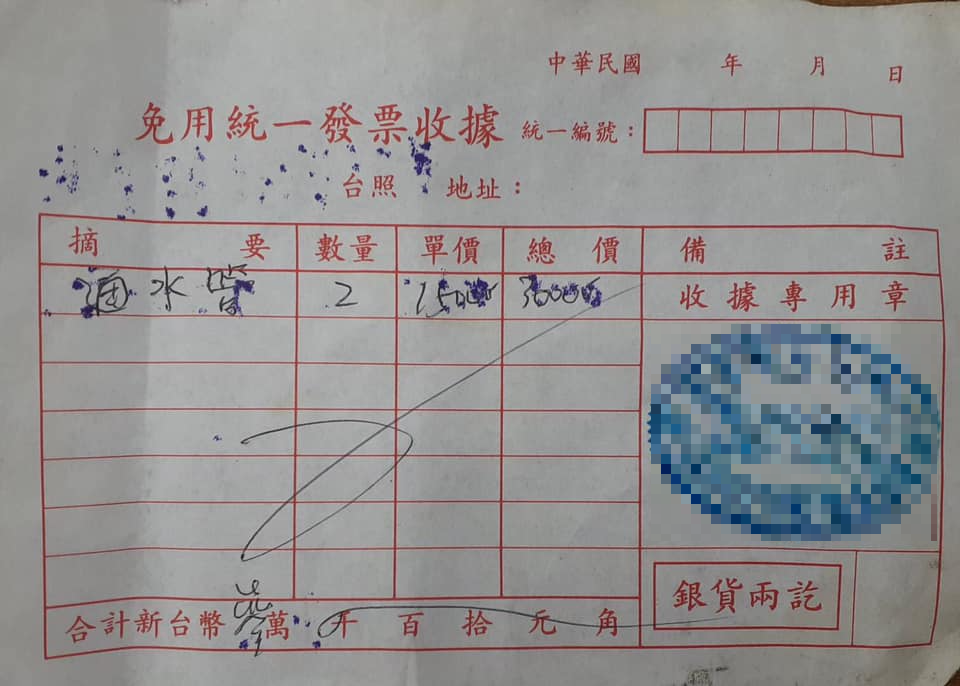 中華民國 年 月 日
免用統一發票收據 統一編號：
台照 地址：
摘要 數量 單價 總價 備註
通水管 2 15000 30000 收據專用章
銀貨兩訖
合計新台幣 參 萬 千 百 拾 元 角